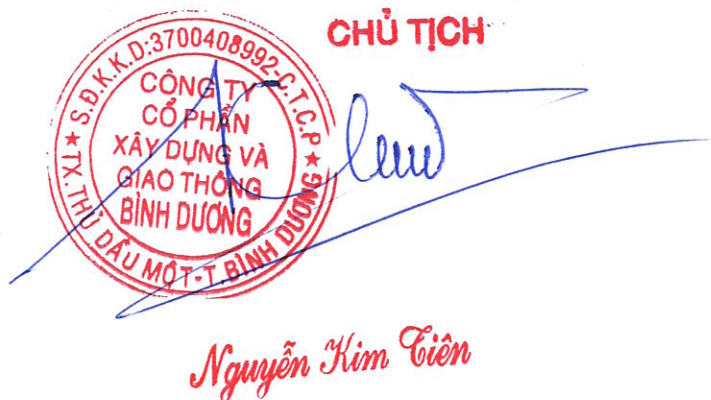 CHỦ TỊCH
S.Đ.K.K.D:3700408992-C.T.C.P
CÔNG TY
CỔ PHẦN
XÂY DỰNG VÀ
GIAO THÔNG
BÌNH DƯƠNG
★ TX. THỦ DẦU MỘT-T.BÌNH DƯƠNG ★
Nguyễn Kim Tiên